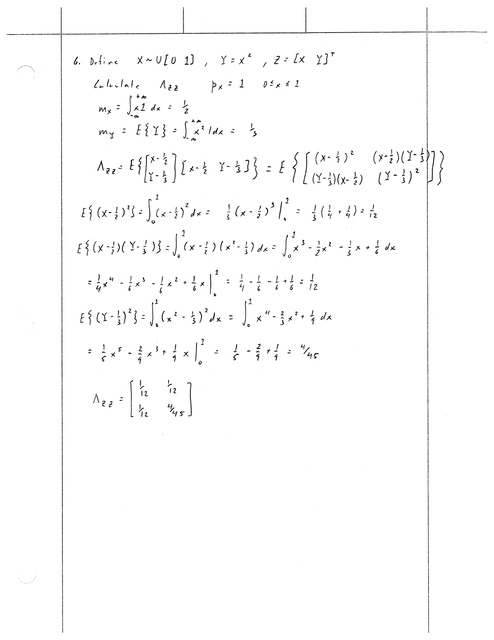 6. Define X ~ U[0 1] , Y = x² , Z = [X Y]ᵀ
Calculate Λzz px = 1 0 ≤ x ≤ 1
mx = ∫_{-∞}^{+∞} x1 dx = 1/2
my = E{Y} = ∫_{-∞}^{+∞} x² 1dx = 1/3
Λzz = E{[x-1/2 Y-1/3] [x-1/2 Y-1/3]} = E{[(x-1/2)² (x-1/2)(Y-1/3) (Y-1/3)(x-1/2) (Y-1/3)²]}
E{(x-1/2)²} = ∫₀¹ (x-1/2)² dx = 1/3 (x-1/2)³ |₀¹ = 1/3 (1/4 + 1/4) = 1/12
E{(x-1/2)(Y-1/3)} = ∫₀¹ (x-1/2)(x²-1/3) dx = ∫₀¹ x³ - 1/2x² - 1/3x + 1/6 dx
= 1/4x⁴ - 1/6x³ - 1/6x² + 1/6x |₀¹ = 1/4 - 1/6 - 1/6 + 1/6 = 1/12
E{(Y-1/3)²} = ∫₀¹ (x² - 1/3)² dx = ∫₀¹ x⁴ - 2/3x² + 1/9 dx
= 1/5x⁵ - 2/9x³ + 1/9x |₀¹ = 1/5 - 2/9 + 1/9 = 4/45
Λzz = [1/12 1/12
1/12 4/45]